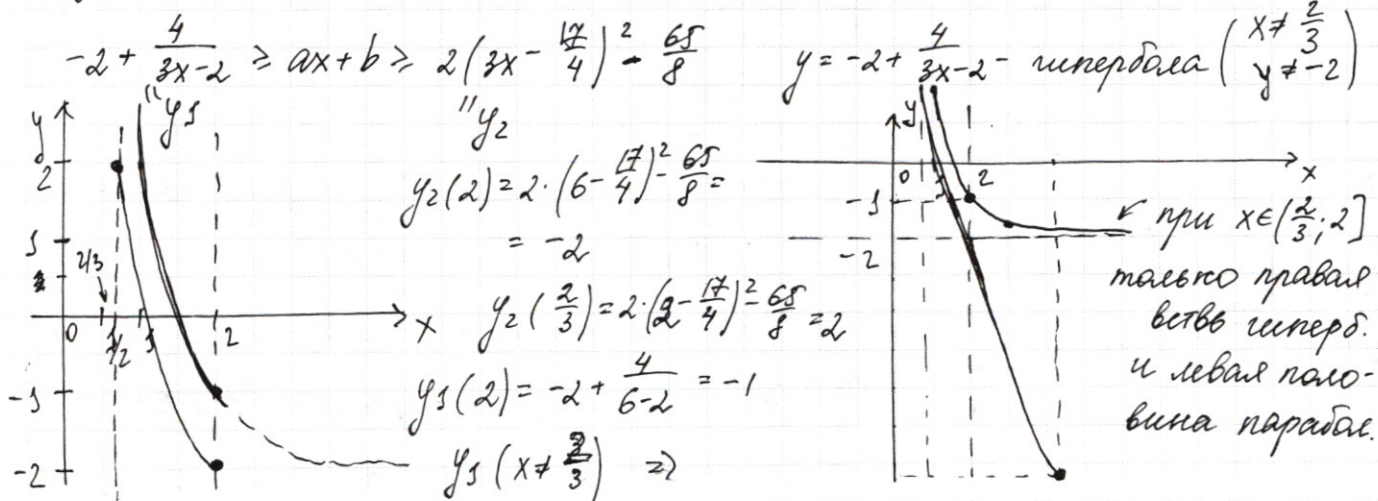 -2 + 4/(3x-2) ≥ ax+b ≥ 2(3x - 17/4)² - 65/8
y = -2 + 4/(3x-2) - гипербола (x ≠ 2/3
y ≠ -2)
"y1
"y2
y
2
1
2/3
0
1/2
1
2
x
-1
-2
y2(2) = 2·(6 - 17/4)² - 65/8 =
= -2
y2(2/3) = 2·(2 - 17/4)² - 65/8 = 2
y1(2) = -2 + 4/(6-2) = -1
y1(x ≠ 2/3) ⇒
y
0
1
2
x
-1
-2
при x∈(2/3; 2]
только правая
ветвь гиперб.
и левая поло-
вина парабол.